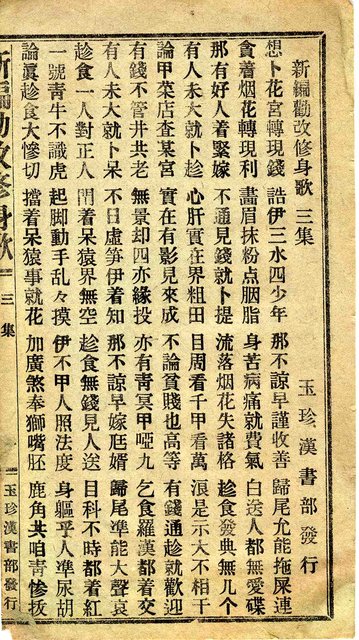 新編勸改修身歌 三集 玉珍漢書部發行
想卜花宮轉現錢 誥伊三水四少年 那不諒早謹收善 歸尾允能拖屎連
貪着烟花轉現利 畵眉抹粉点烟脂 身苦病痛就費氣 白送人都無愛碟
那有好人着緊嫁 不通見錢就卜提 流落烟花失諸格 趁食發典無几个
有人未大就卜趁 心肝實在界粗田 目周看千甲看萬 浪是示大不相干
論甲菜店查某宮 實在有影見來成 不論貧賤也高等 有錢通趁就歡迎
有錢不管井共老 無景却四亦緣投 亦有靑冥甲啞九 乞食羅漢都着交
有人未大就卜呆 不日虛笋伊着知 那不諒早嫁尫婿 歸尾準能大聲哀
趁食一人對正人 閙着呆猿界無空 趁食無錢見人送 目科不時都着紅
一號靑牛不識虎 起脚動手乱々摸 伊不甲人照法度 身軀乎人準尿胡
論眞趁食大慘切 擋着呆猿事就花 加廣煞奉獅嘴胚 鹿角共咱靑慘拔
新編勸改修身歌 三集 玉珍漢書部發行